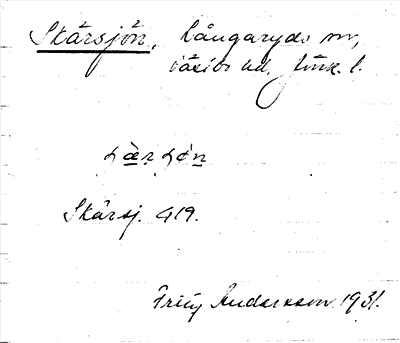 Skärsjön, Långaryds sn,
Västbo hd. Jönk. l.
Skärsj. 419.
Fritz Anderson 1931.